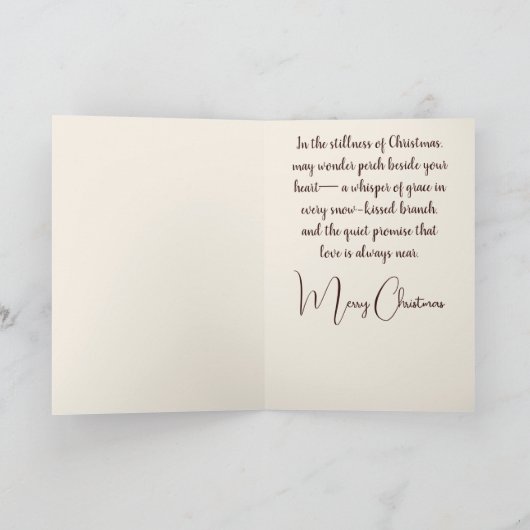 In the stillness of Christmas,
may wonder perch beside your
heart— a whisper of grace in
every snow-kissed branch,
and the quiet promise that
love is always near.
Merry Christmas